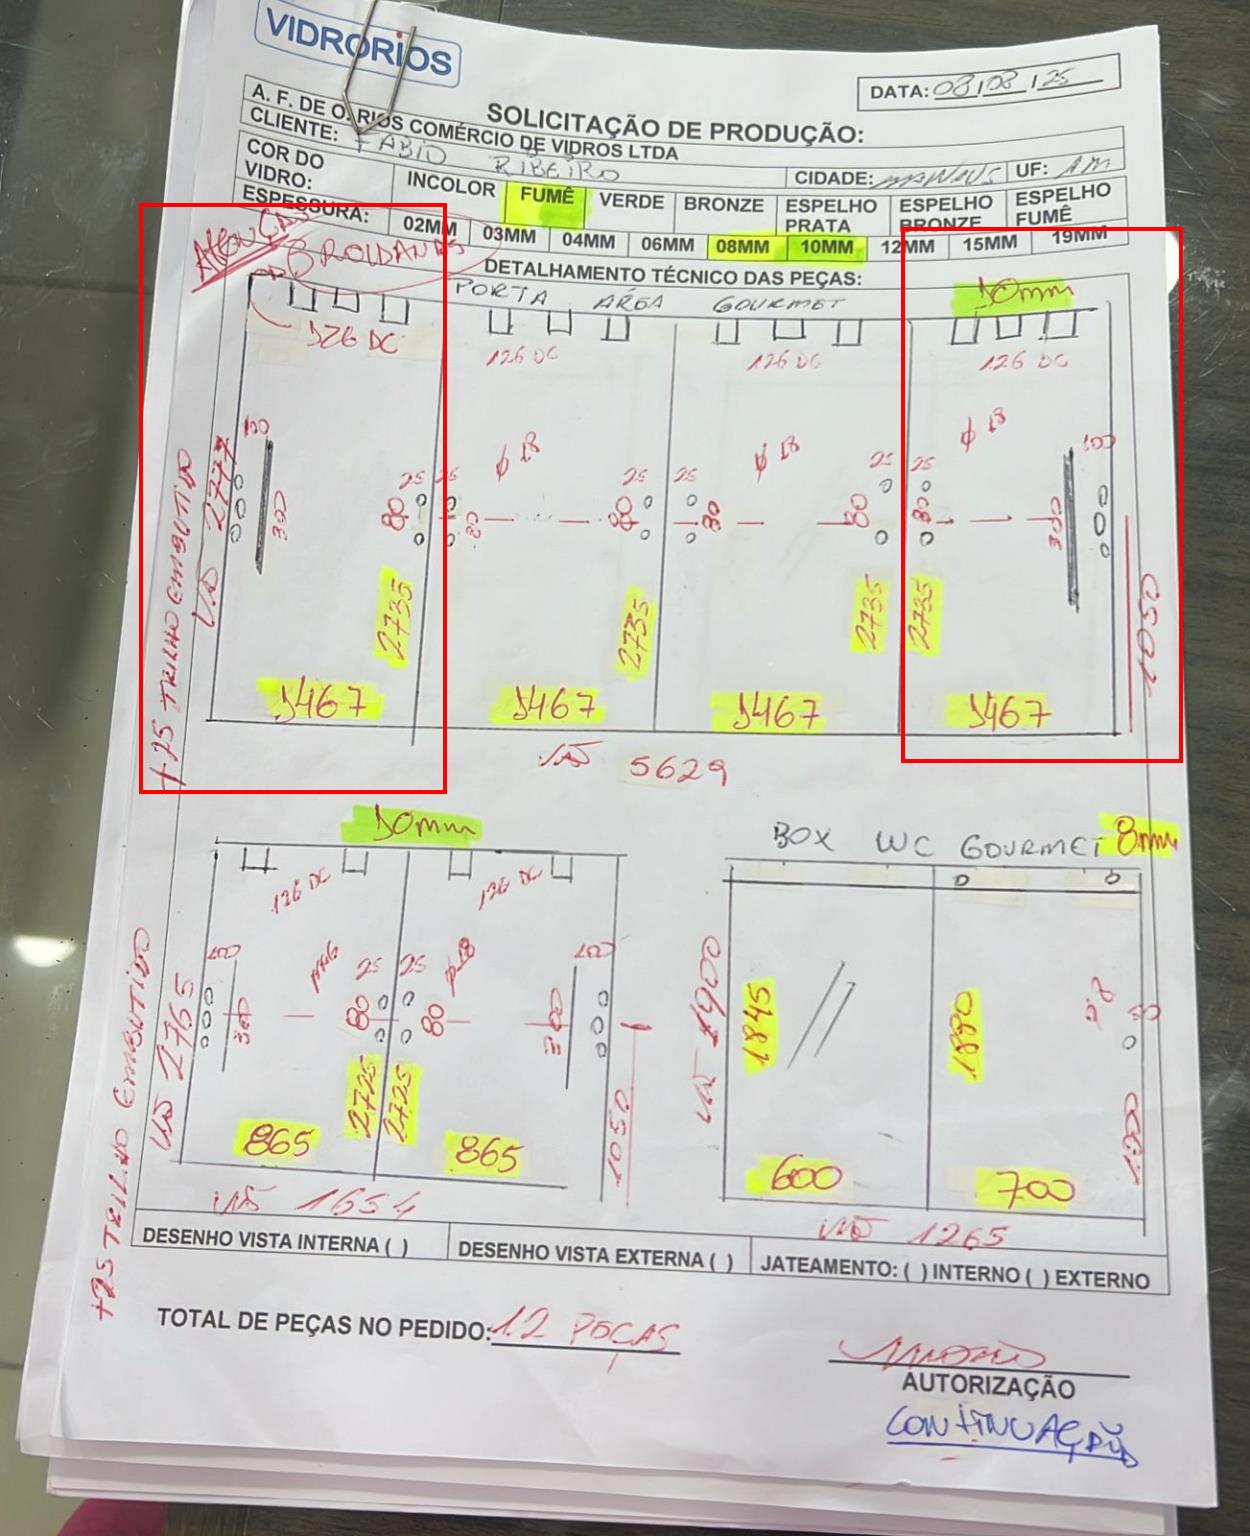 VIDRORIOS
DATA: 08/08/25
SOLICITAÇÃO DE PRODUÇÃO:
A. F. DE O. RIOS COMÉRCIO DE VIDROS LTDA
CLIENTE: FABIO RIBEIRO
CIDADE: MANAUS UF: AM
COR DO VIDRO: INCOLOR FUMÊ VERDE BRONZE ESPELHO PRATA ESPELHO BRONZE ESPELHO FUMÊ
ESPESSURA: 02MM 03MM 04MM 06MM 08MM 10MM 12MM 15MM 19MM
DETALHAMENTO TÉCNICO DAS PEÇAS:
3 ROLDANAS
PORTA ÁREA GOURMET
10mm
126 DC 126 DC 126 DC 126 DC
ϕ 18 ϕ 18 ϕ 18
100 25 25 25 25 25 25 100
300 80 80 80 80 80 80 300
VÃO 2777
+25 TRILHO EMBUTIDO
2735 2735 2735 2735
1050
1467 1467 1467 1467
VÃO 5629
10mm
BOX WC GOURMET 8mm
126 DC 126 DC
100 25 25 ϕ 18 100
300 80 80 300
VÃO 2765
+25 TRILHO EMBUTIDO
2725 2725
1050
865 865
VÃO 1654
VÃO 1900
1845 1880
600 700
VÃO 1265
DESENHO VISTA INTERNA ( ) DESENHO VISTA EXTERNA ( ) JATEAMENTO: ( ) INTERNO ( ) EXTERNO
TOTAL DE PEÇAS NO PEDIDO: 12 PECAS
AUTORIZAÇÃO
CONTINUAÇÃO